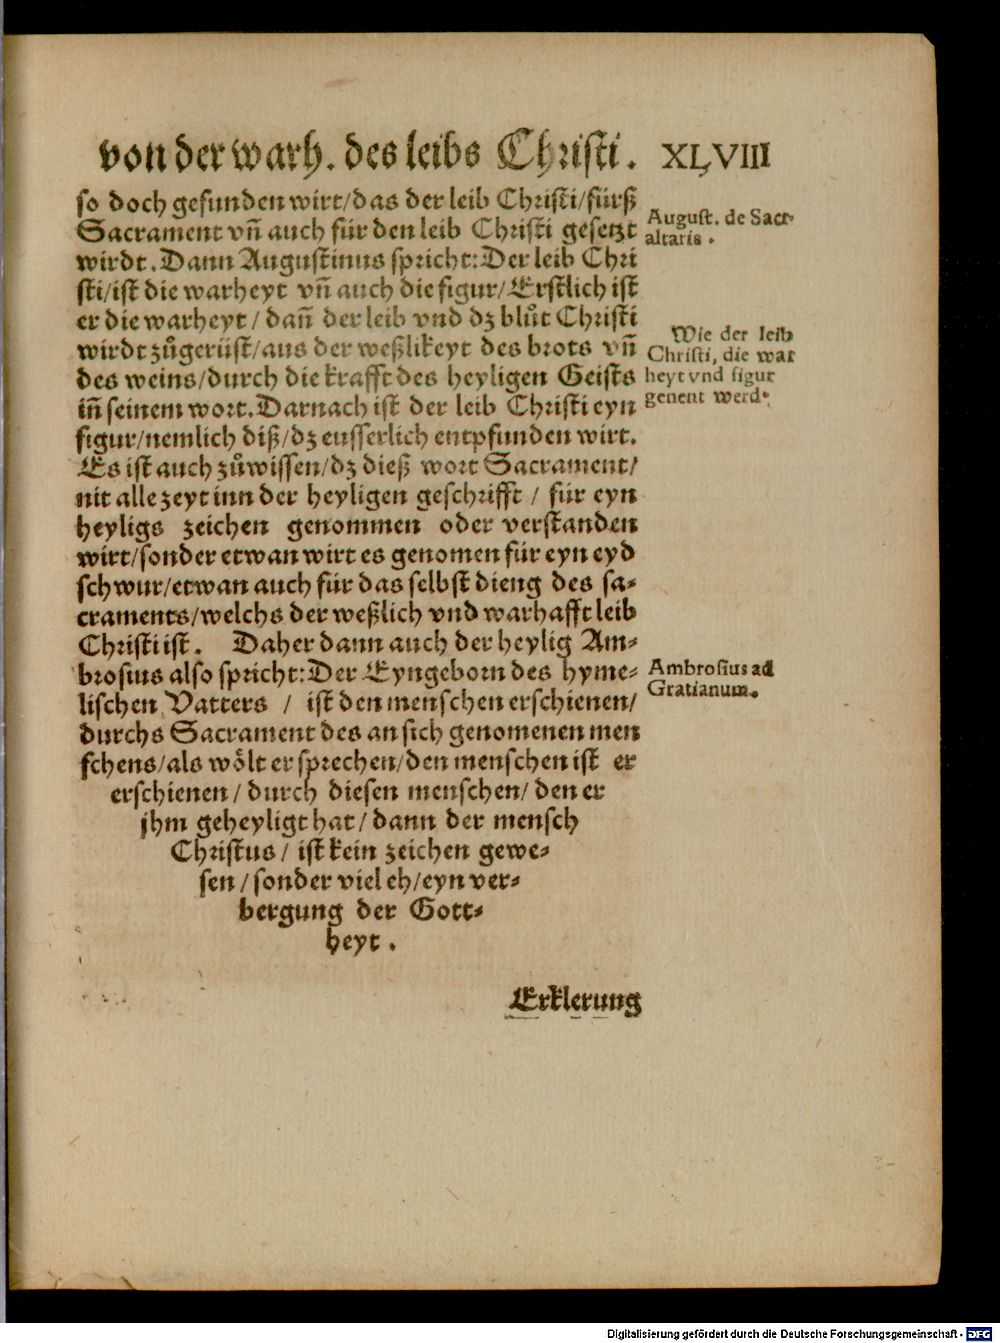 von der warh. des leibs Christi. XLVIII
so doch gefunden wirt/das der leib Christi/fürß
Sacrament vn̄ auch für den leib Christi gesetzt
wirdt. Dann Augustinus spricht: Der leib Chri
sti/ist die warheyt vn̄ auch die figur/Erstlich ist
er die warheyt/dan̄ der leib vnd dz blůt Christi
wirdt zůgerüst/aus der weßlikeyt des brots vn̄
des weins/durch die krafft des heyligen Geists
in̄ seinem wort. Darnach ist der leib Christi eyn
figur/nemlich diß/dz eusserlich entpfunden wirt.
Es ist auch zůwissen/dz dieß wort Sacrament/
nit alle zeyt inn der heyligen geschrifft / für eyn
heyligs zeichen genommen oder verstanden
wirt/sonder etwan wirt es genomen für eyn eyd
schwur/etwan auch für das selbst dieng des sa-
craments/welchs der weßlich vnd warhafft leib
Christi ist. Daher dann auch der heylig Am-
brosius also spricht: Der Eyngeborn des hyme-
lischen Vatters / ist den menschen erschienen/
durchs Sacrament des an sich genomenen men
schens/als wölt er sprechen/den menschen ist er
erschienen/durch diesen menschen/den er
jhm geheyligt hat/dann der mensch
Christus/ist kein zeichen gewe-
sen/sonder viel eh/eyn ver-
bergung der Gott-
heyt.
Erklerung
August. de Sacr.
altaris.
Wie der leib
Christi, die war
heyt vnd figur
genent werd.
Ambrosius ad
Gratianum.
Digitalisierung gefördert durch die Deutsche Forschungsgemeinschaft - DFG